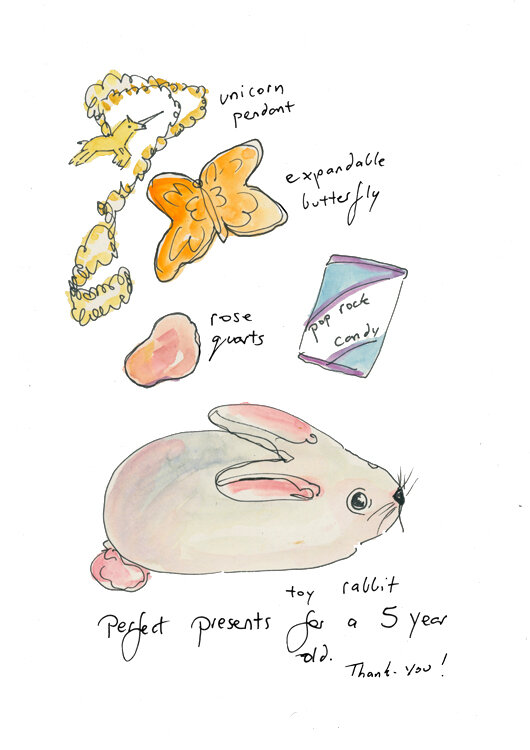 unicorn
pendant
expandable
butterfly
rose
quarts
pop rock
candy
toy rabbit
Perfect presents for a 5 year
old.
Thank. you!